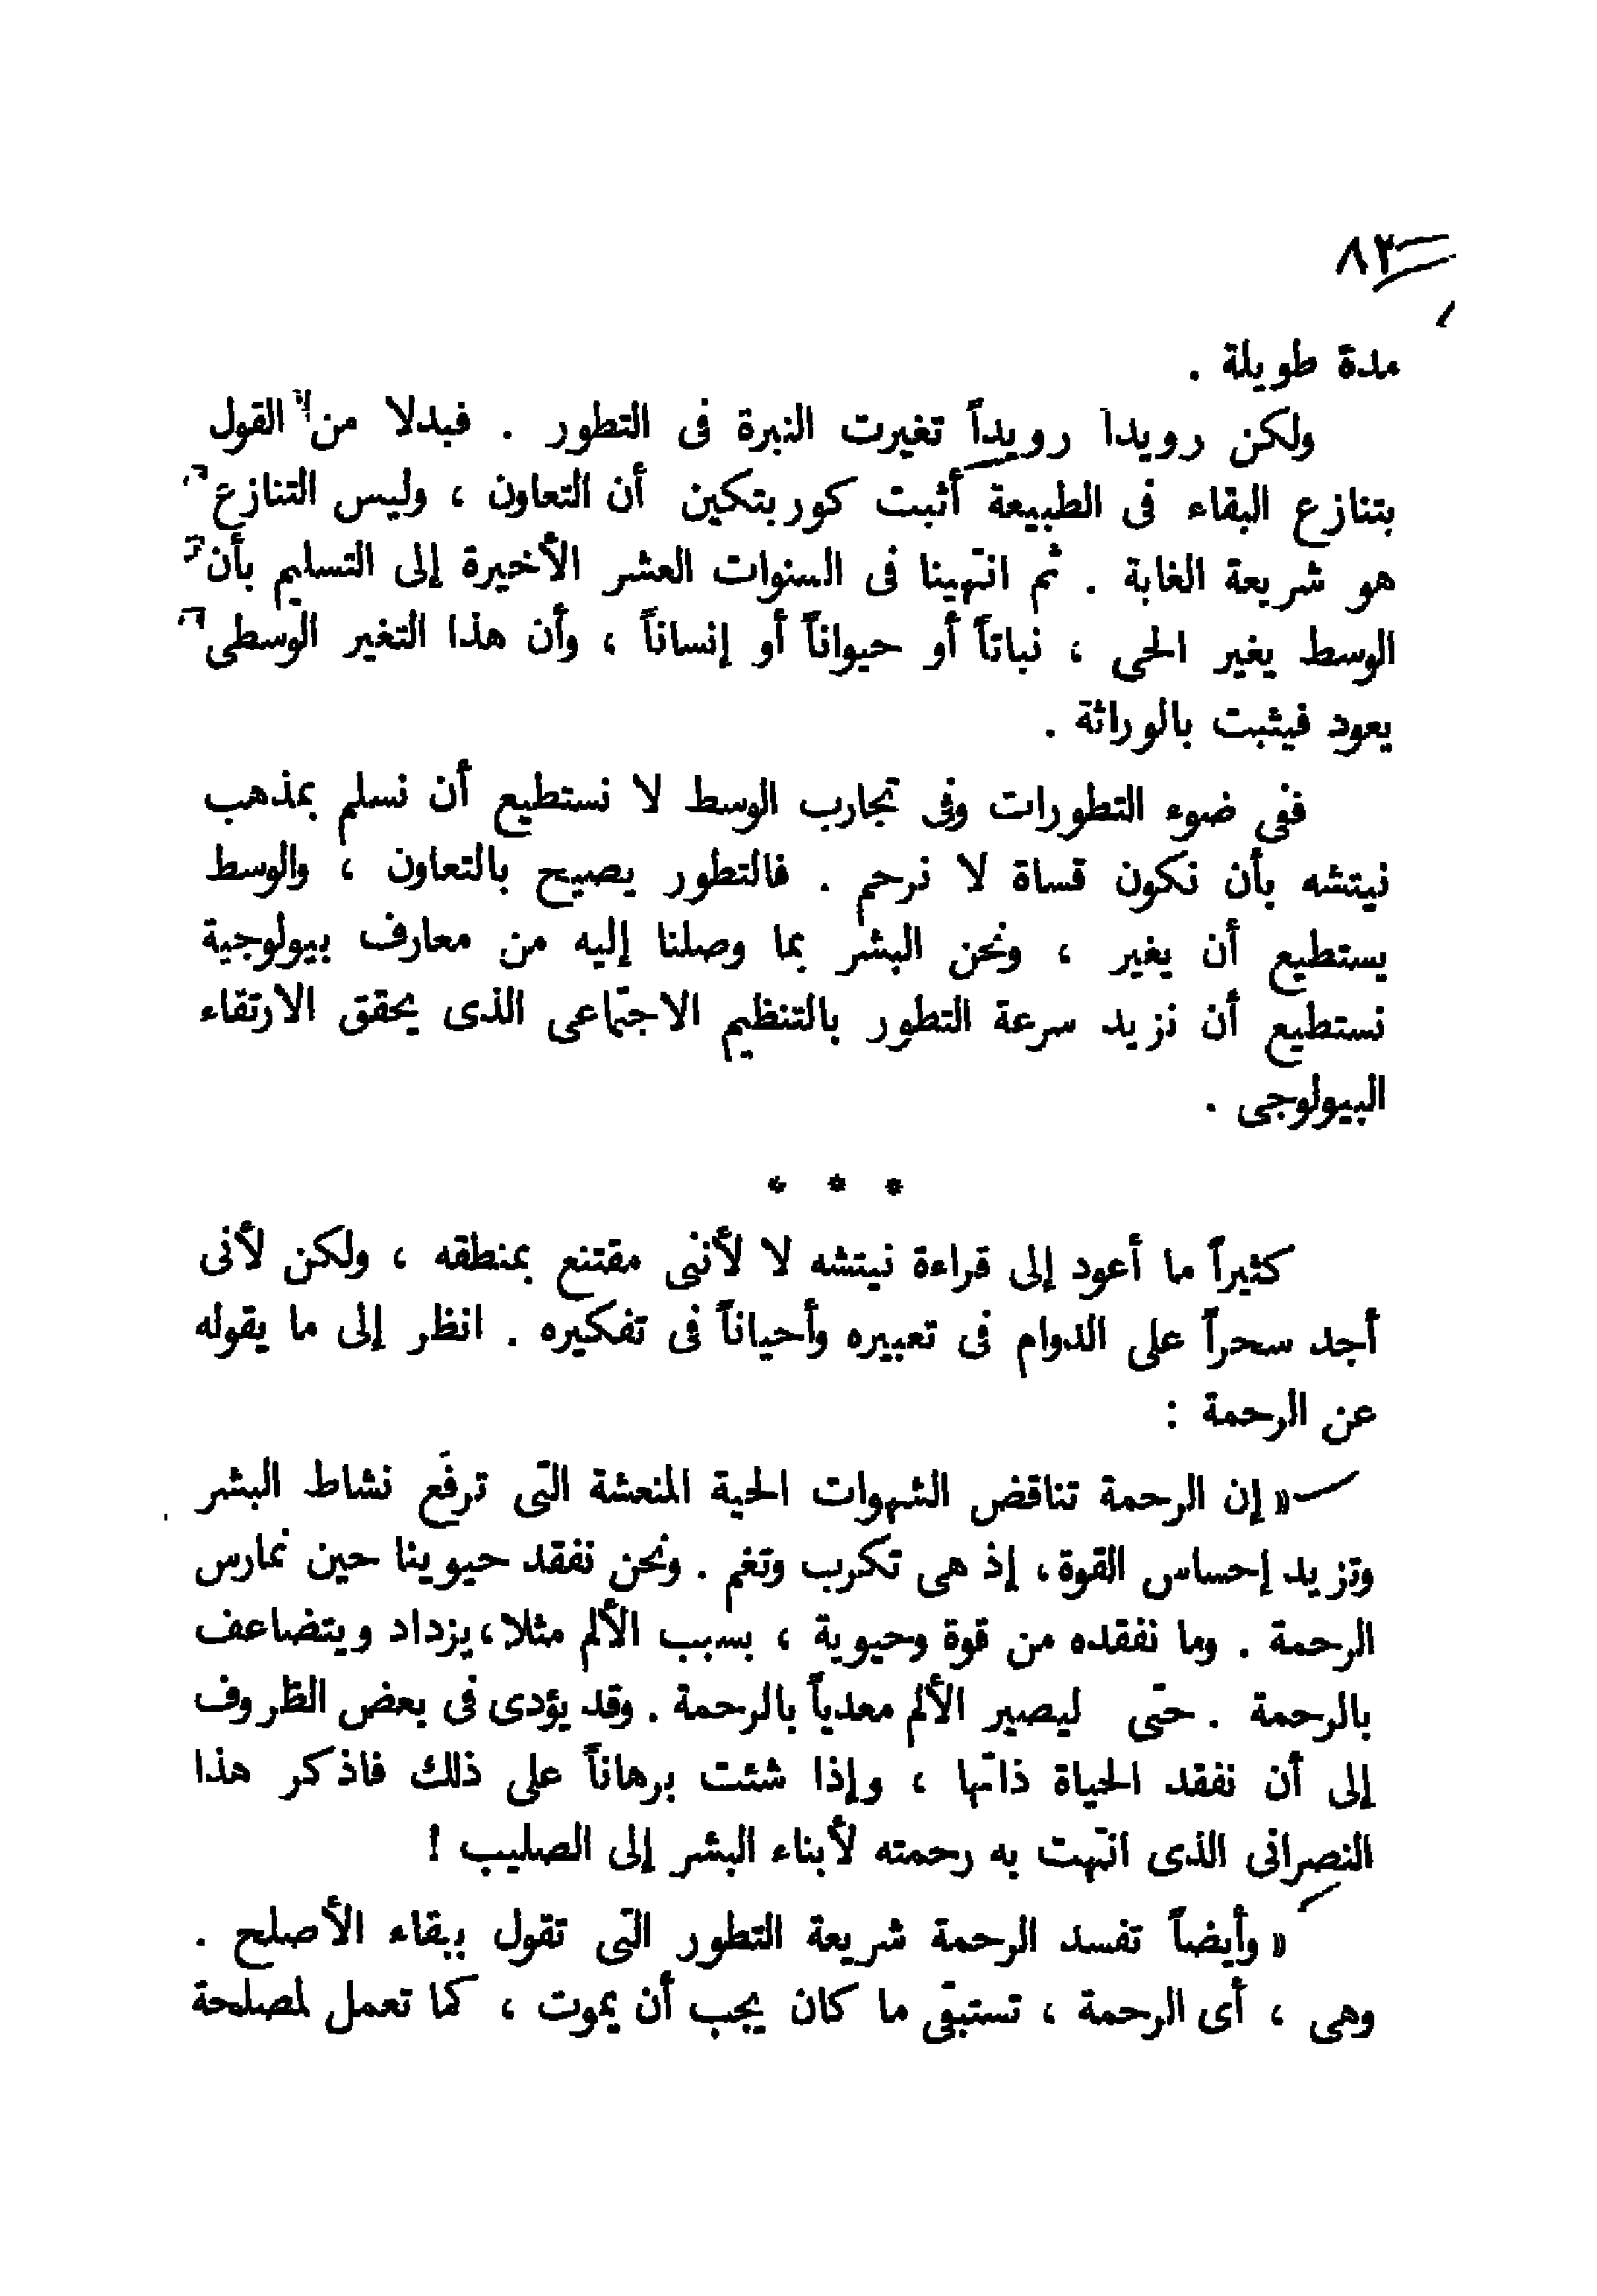 ٨٢
مدة طويلة .
ولكن رويدا رويداً تغيرت النبرة فى التطور . فبدلا من القول
بتنازع البقاء فى الطبيعة أثبت كوربتكين أن التعاون ، وليس التنازع
هو شريعة الغابة . ثم انتهينا فى السنوات العشر الأخيرة إلى التسليم بأن
الوسط يغير الحى ، نباتاً أو حيواناً أو إنساناً ، وأن هذا التغير الوسطى
يعود فيثبت بالوراثة .
ففى ضوء التطورات وفى تجارب الوسط لا نستطيع أن نسلم بمذهب
نيتشه بأن نكون قساة لا نرحم . فالتطور يصيح بالتعاون ، والوسط
يستطيع أن يغير ، ونحن البشر بما وصلنا إليه من معارف بيولوجية
نستطيع أن نزيد سرعة التطور بالتنظيم الاجتماعى الذى يحقق الارتقاء
البيولوجى .
* * *
كثيراً ما أعود إلى قراءة نيتشه لا لأننى مقتنع بمنطقه ، ولكن لأنى
أجد سحراً على الدوام فى تعبيره وأحياناً فى تفكيره . انظر إلى ما يقوله
عن الرحمة :
« إن الرحمة تناقض الشهوات الحية المنعشة التى ترفع نشاط البشر
وتزيد إحساس القوة، إذ هى تكرب وتغم . ونحن نفقد حيويتنا حين نمارس
الرحمة . وما نفقده من قوة وحيوية ، بسبب الألم مثلا، يزداد ويتضاعف
بالرحمة . حتى ليصير الألم معدياً بالرحمة . وقد يؤدى فى بعض الظروف
إلى أن نفقد الحياة ذاتها ، وإذا شئت برهاناً على ذلك فاذكر هذا
النصرانى الذى انتهت به رحمته لأبناء البشر إلى الصليب !
« وأيضاً تفسد الرحمة شريعة التطور التى تقول ببقاء الأصلح .
وهى ، أى الرحمة ، تستبقى ما كان يجب أن يموت ، كما تعمل لمصلحة